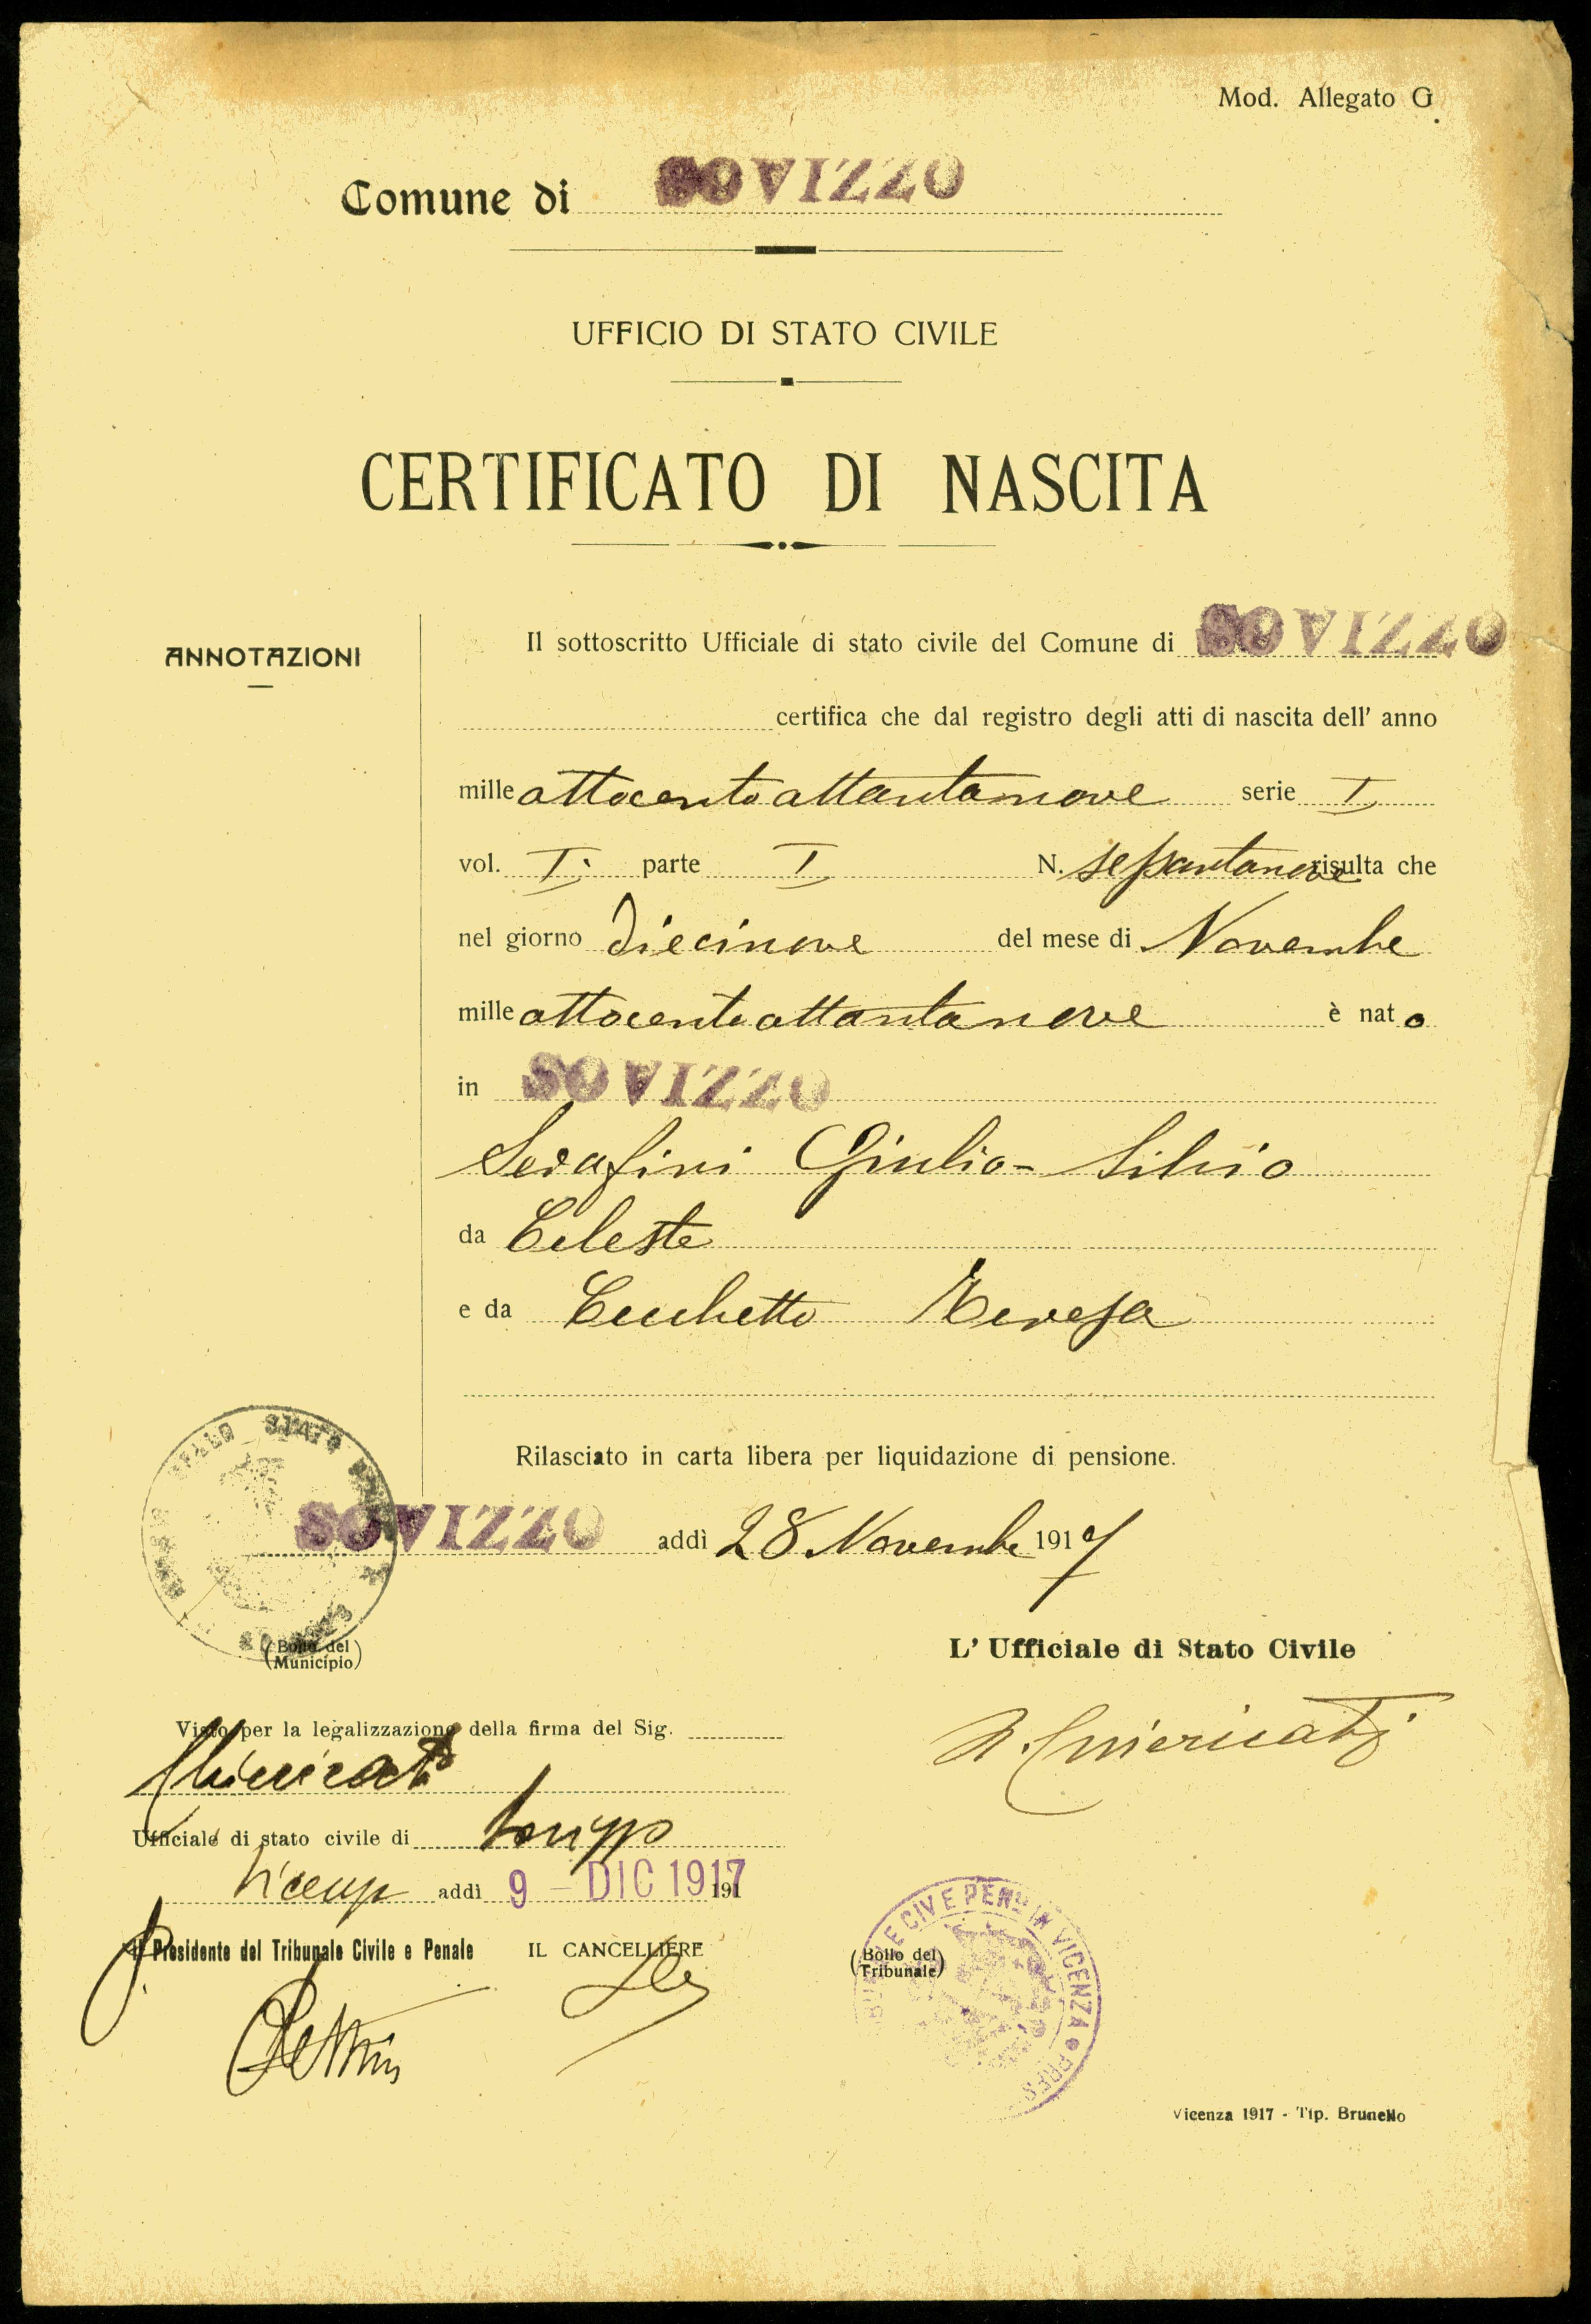 Mod. Allegato G
Comune di SOVIZZO
UFFICIO DI STATO CIVILE
CERTIFICATO DI NASCITA
ANNOTAZIONI
Il sottoscritto Ufficiale di stato civile del Comune di SOVIZZO
certifica che dal registro degli atti di nascita dell' anno
mille ottocentoottantanove serie I
vol. I. parte I N. risulta che
nel giorno diecinove del mese di Novembe
mille ottocentoottantanove è nato
in SOVIZZO
Serafini Giulio - Silvio
da Celeste
e da Cecchetto Teresa
Rilasciato in carta libera per liquidazione di pensione.
SOVIZZO addì 28 Novembe 1917
(Bollo del Municipio)
L' Ufficiale di Stato Civile
Visto per la legalizzazione della firma del Sig.
Chiericati
Ufficiale di stato civile di Sovizzo
Vicenza addì 9 - DIC 1917 191
Il Presidente del Tribunale Civile e Penale IL CANCELLIERE
(Bollo del Tribunale)
CIV E PEN IN VICENZA PRES
Vicenza 1917 - Tip. Brunello